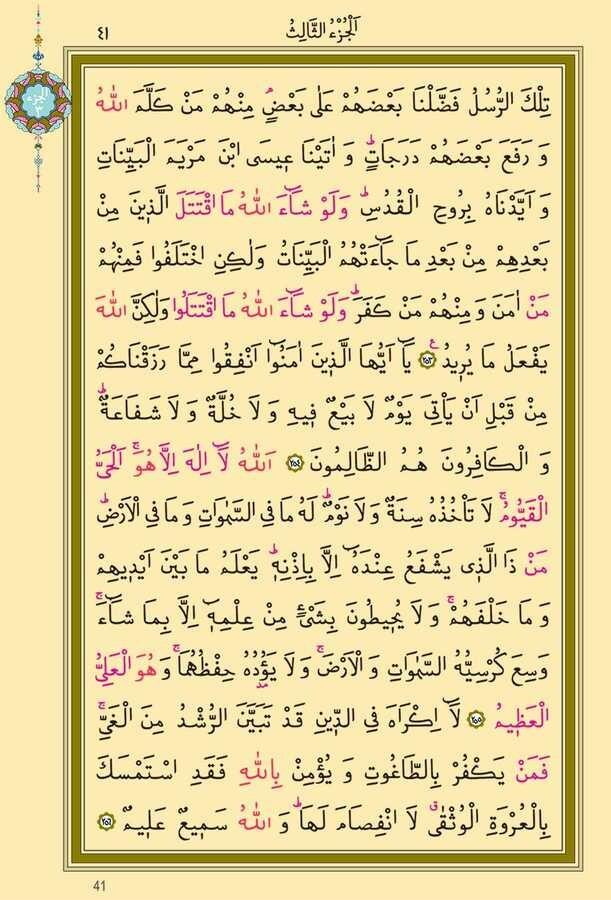 اَلْجُزْءُ الثَّالِثُ ٤١
الجزء ٣
تِلْكَ الرُّسُلُ فَضَّلْنَا بَعْضَهُمْ عَلٰى بَعْضٍۢ مِنْهُمْ مَنْ كَلَّمَ اللّٰهُ
وَ رَفَعَ بَعْضَهُمْ دَرَجَاتٍۜ وَ اٰتَيْنَا عِيسَى ابْنَ مَرْيَمَ الْبَيِّنَاتِ
وَ اَيَّدْنَاهُ بِرُوحِ الْقُدُسِۜ وَلَوْ شَٓاءَ اللّٰهُ مَا اقْتَتَلَ الَّذِينَ مِنْ
بَعْدِهِمْ مِنْ بَعْدِ مَا جَٓاءَتْهُمُ الْبَيِّنَاتُ وَلٰكِنِ اخْتَلَفُوا فَمِنْهُمْ
مَنْ اٰمَنَ وَ مِنْهُمْ مَنْ كَفَرَۜ وَلَوْ شَٓاءَ اللّٰهُ مَا اقْتَتَلُوا وَلٰكِنَّ اللّٰهَ
يَفْعَلُ مَا يُرِيدُ۟ ﴿٢٥٣﴾ يَٓا اَيُّهَا الَّذِينَ اٰمَنُٓوا اَنْفِقُوا مِمَّا رَزَقْنَاكُمْ
مِنْ قَبْلِ اَنْ يَأْتِيَ يَوْمٌ لَا بَيْعٌ فِيهِ وَ لَا خُلَّةٌ وَ لَا شَفَاعَةٌۜ
وَ الْكَافِرُونَ هُمُ الظَّالِمُونَ ﴿٢٥٤﴾ اَللّٰهُ لَٓا اِلٰهَ اِلَّا هُوَۚ اَلْحَيُّ
الْقَيُّومُۚ لَا تَأْخُذُهُ سِنَةٌ وَ لَا نَوْمٌۜ لَهُ مَا فِي السَّمٰوَاتِ وَ مَا فِي الْاَرْضِۜ
مَنْ ذَا الَّذِي يَشْفَعُ عِنْدَهُٓ اِلَّا بِاِذْنِهِۜ يَعْلَمُ مَا بَيْنَ اَيْدِيهِمْ
وَ مَا خَلْفَهُمْۚ وَ لَا يُحِيطُونَ بِشَيْءٍ مِنْ عِلْمِهِٓ اِلَّا بِمَا شَٓاءَۚ
وَسِعَ كُرْسِيُّهُ السَّمٰوَاتِ وَ الْاَرْضَۚ وَ لَا يَؤُ۫دُهُ حِفْظُهُمَاۚ وَ هُوَ الْعَلِيُّ
الْعَظِيمُ ﴿٢٥٥﴾ لَٓا اِكْرَاهَ فِي الدِّينِ قَدْ تَبَيَّنَ الرُّشْدُ مِنَ الْغَيِّۚ
فَمَنْ يَكْفُرْ بِالطَّاغُوتِ وَ يُؤْمِنْ بِاللّٰهِ فَقَدِ اسْتَمْسَكَ
بِالْعُرْوَةِ الْوُثْقٰىۗ لَا انْفِصَامَ لَهَاۜ وَ اللّٰهُ سَمِيعٌ عَلِيمٌ ﴿٢٥٦﴾
41